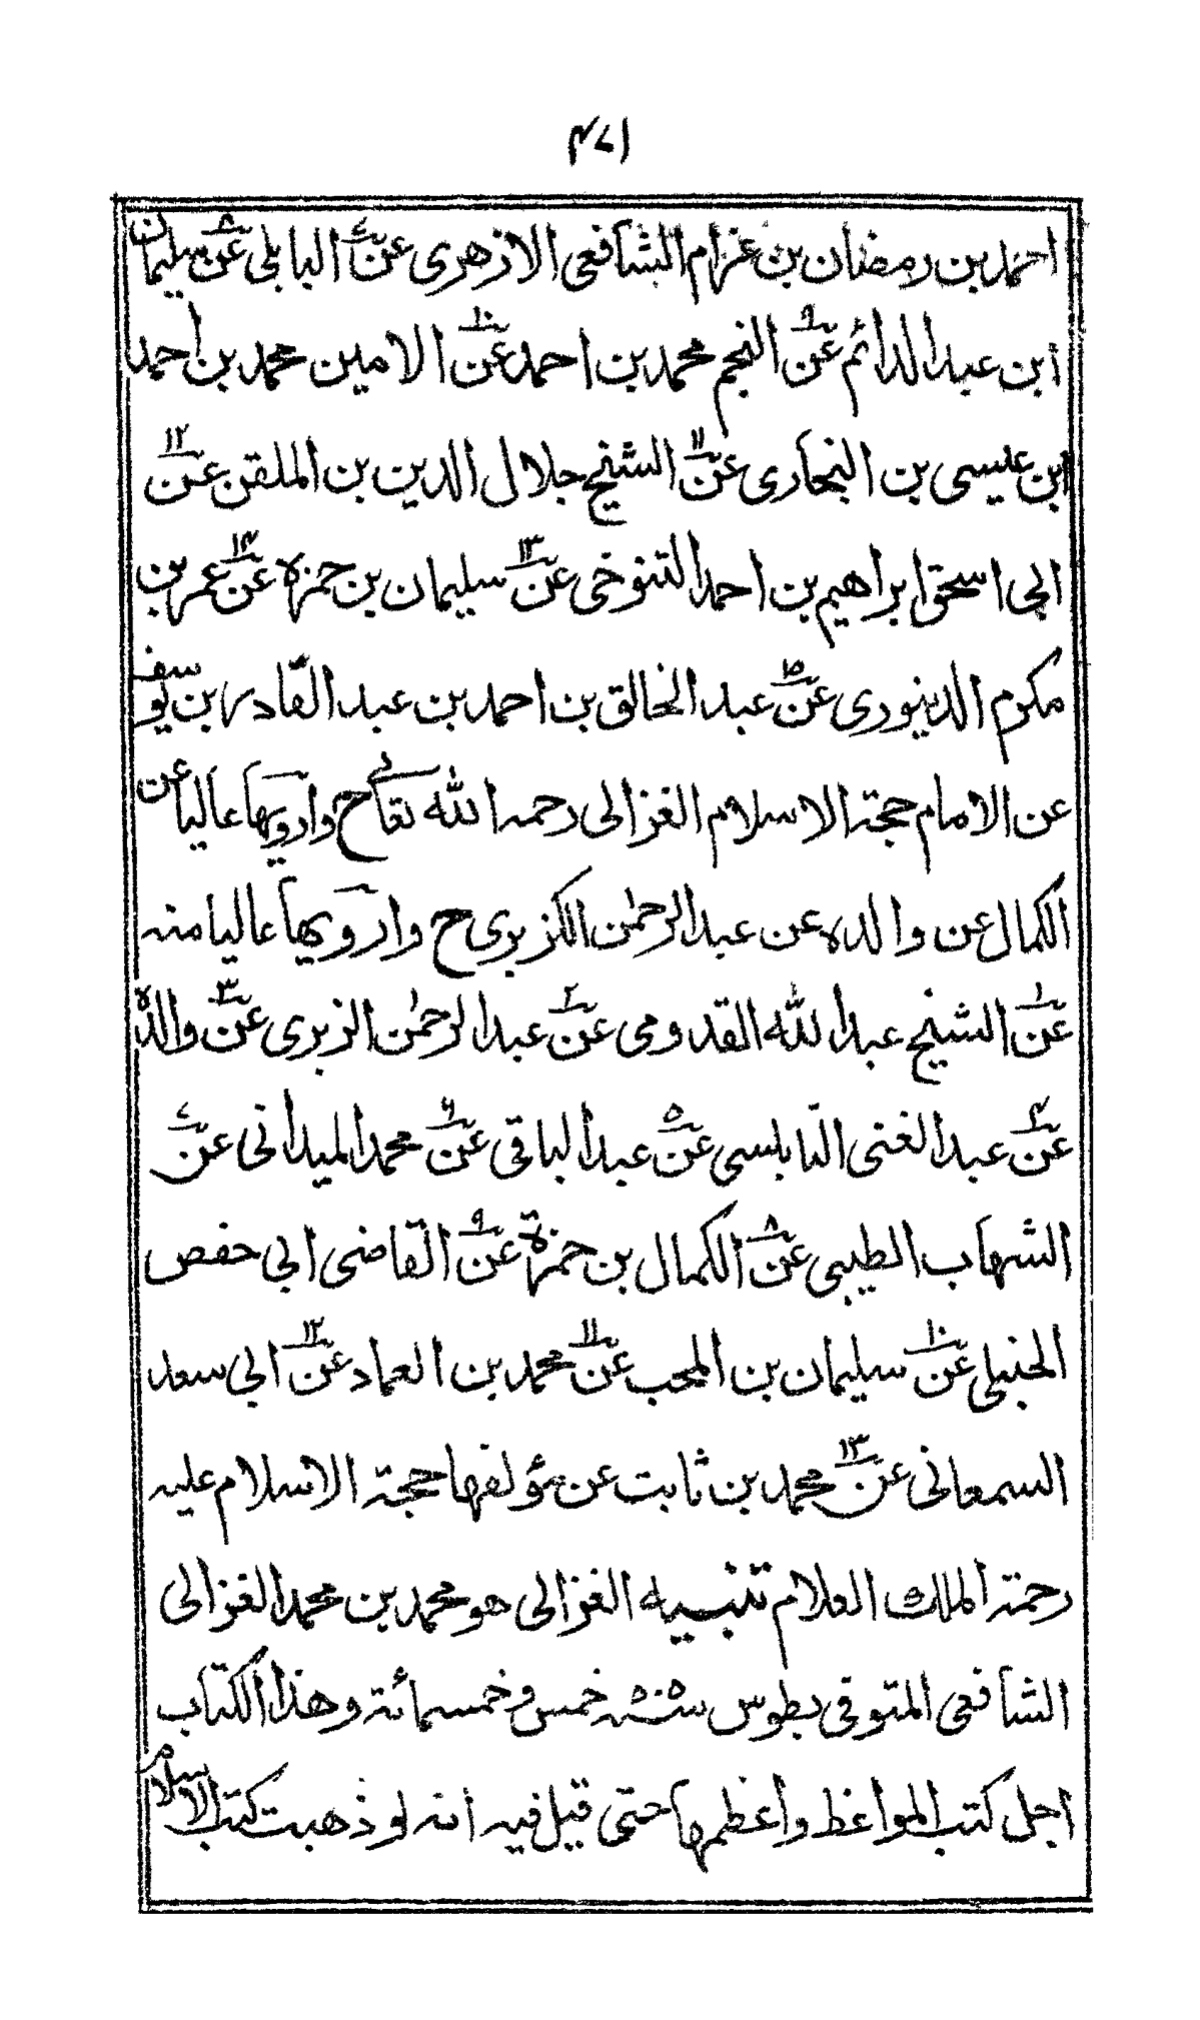 ٤٧١
احمد بن رمضان بن غزام الشافعى الازهرى عن٧ البابلى عن٨ سليمان
ابن عبد الدائم عن٩ النجم محمد بن احمد عن١٠ الامين محمد بن احمد
ابن عيسى بن النجارى عن١١ الشيخ جلال الدين بن الملقن عن١٢
ابى اسحق ابراهيم بن احمد التنوخى عن١٣ سليمان بن حمزه عن١٤ عمر بن
مكرم الدينورى عن١٥ عبد الخالق بن احمد بن عبد القادر بن يوسف
عن الامام حجة الاسلام الغزالى رحمه الله تعالى ح وارويها عاليا عن
الكمال عن والده عن عبد الرحمٰن الكزبرى ح وارويها عاليا منه
عن١ الشيخ عبد الله القدومى عن٢ عبد الرحمٰن الزبرى عن٣ والده
عن٤ عبد الغنى النابلسى عن٥ عبد الباقى عن٦ محمد الميدانى عن٧
الشهاب الطيبى عن٨ الكمال بن حمزة عن٩ القاضى ابى حفص
الحنبلى عن١٠ سليمان بن المحب عن١١ محمد بن العماد عن١٢ ابى سعد
السمعانى عن١٣ محمد بن ثابت عن مؤلفها حجة الاسلام عليه
رحمة الملك العلام تنبيه الغزالى هو محمد بن محمد الغزالى
الشافعى المتوفى بطوس سنه ٥٠٥ خمس وخمسمائة وهذا الكتاب
اجل كتب المواعظ واعظمها حتى قيل فيه انه لو ذهبت كتب الاسلام